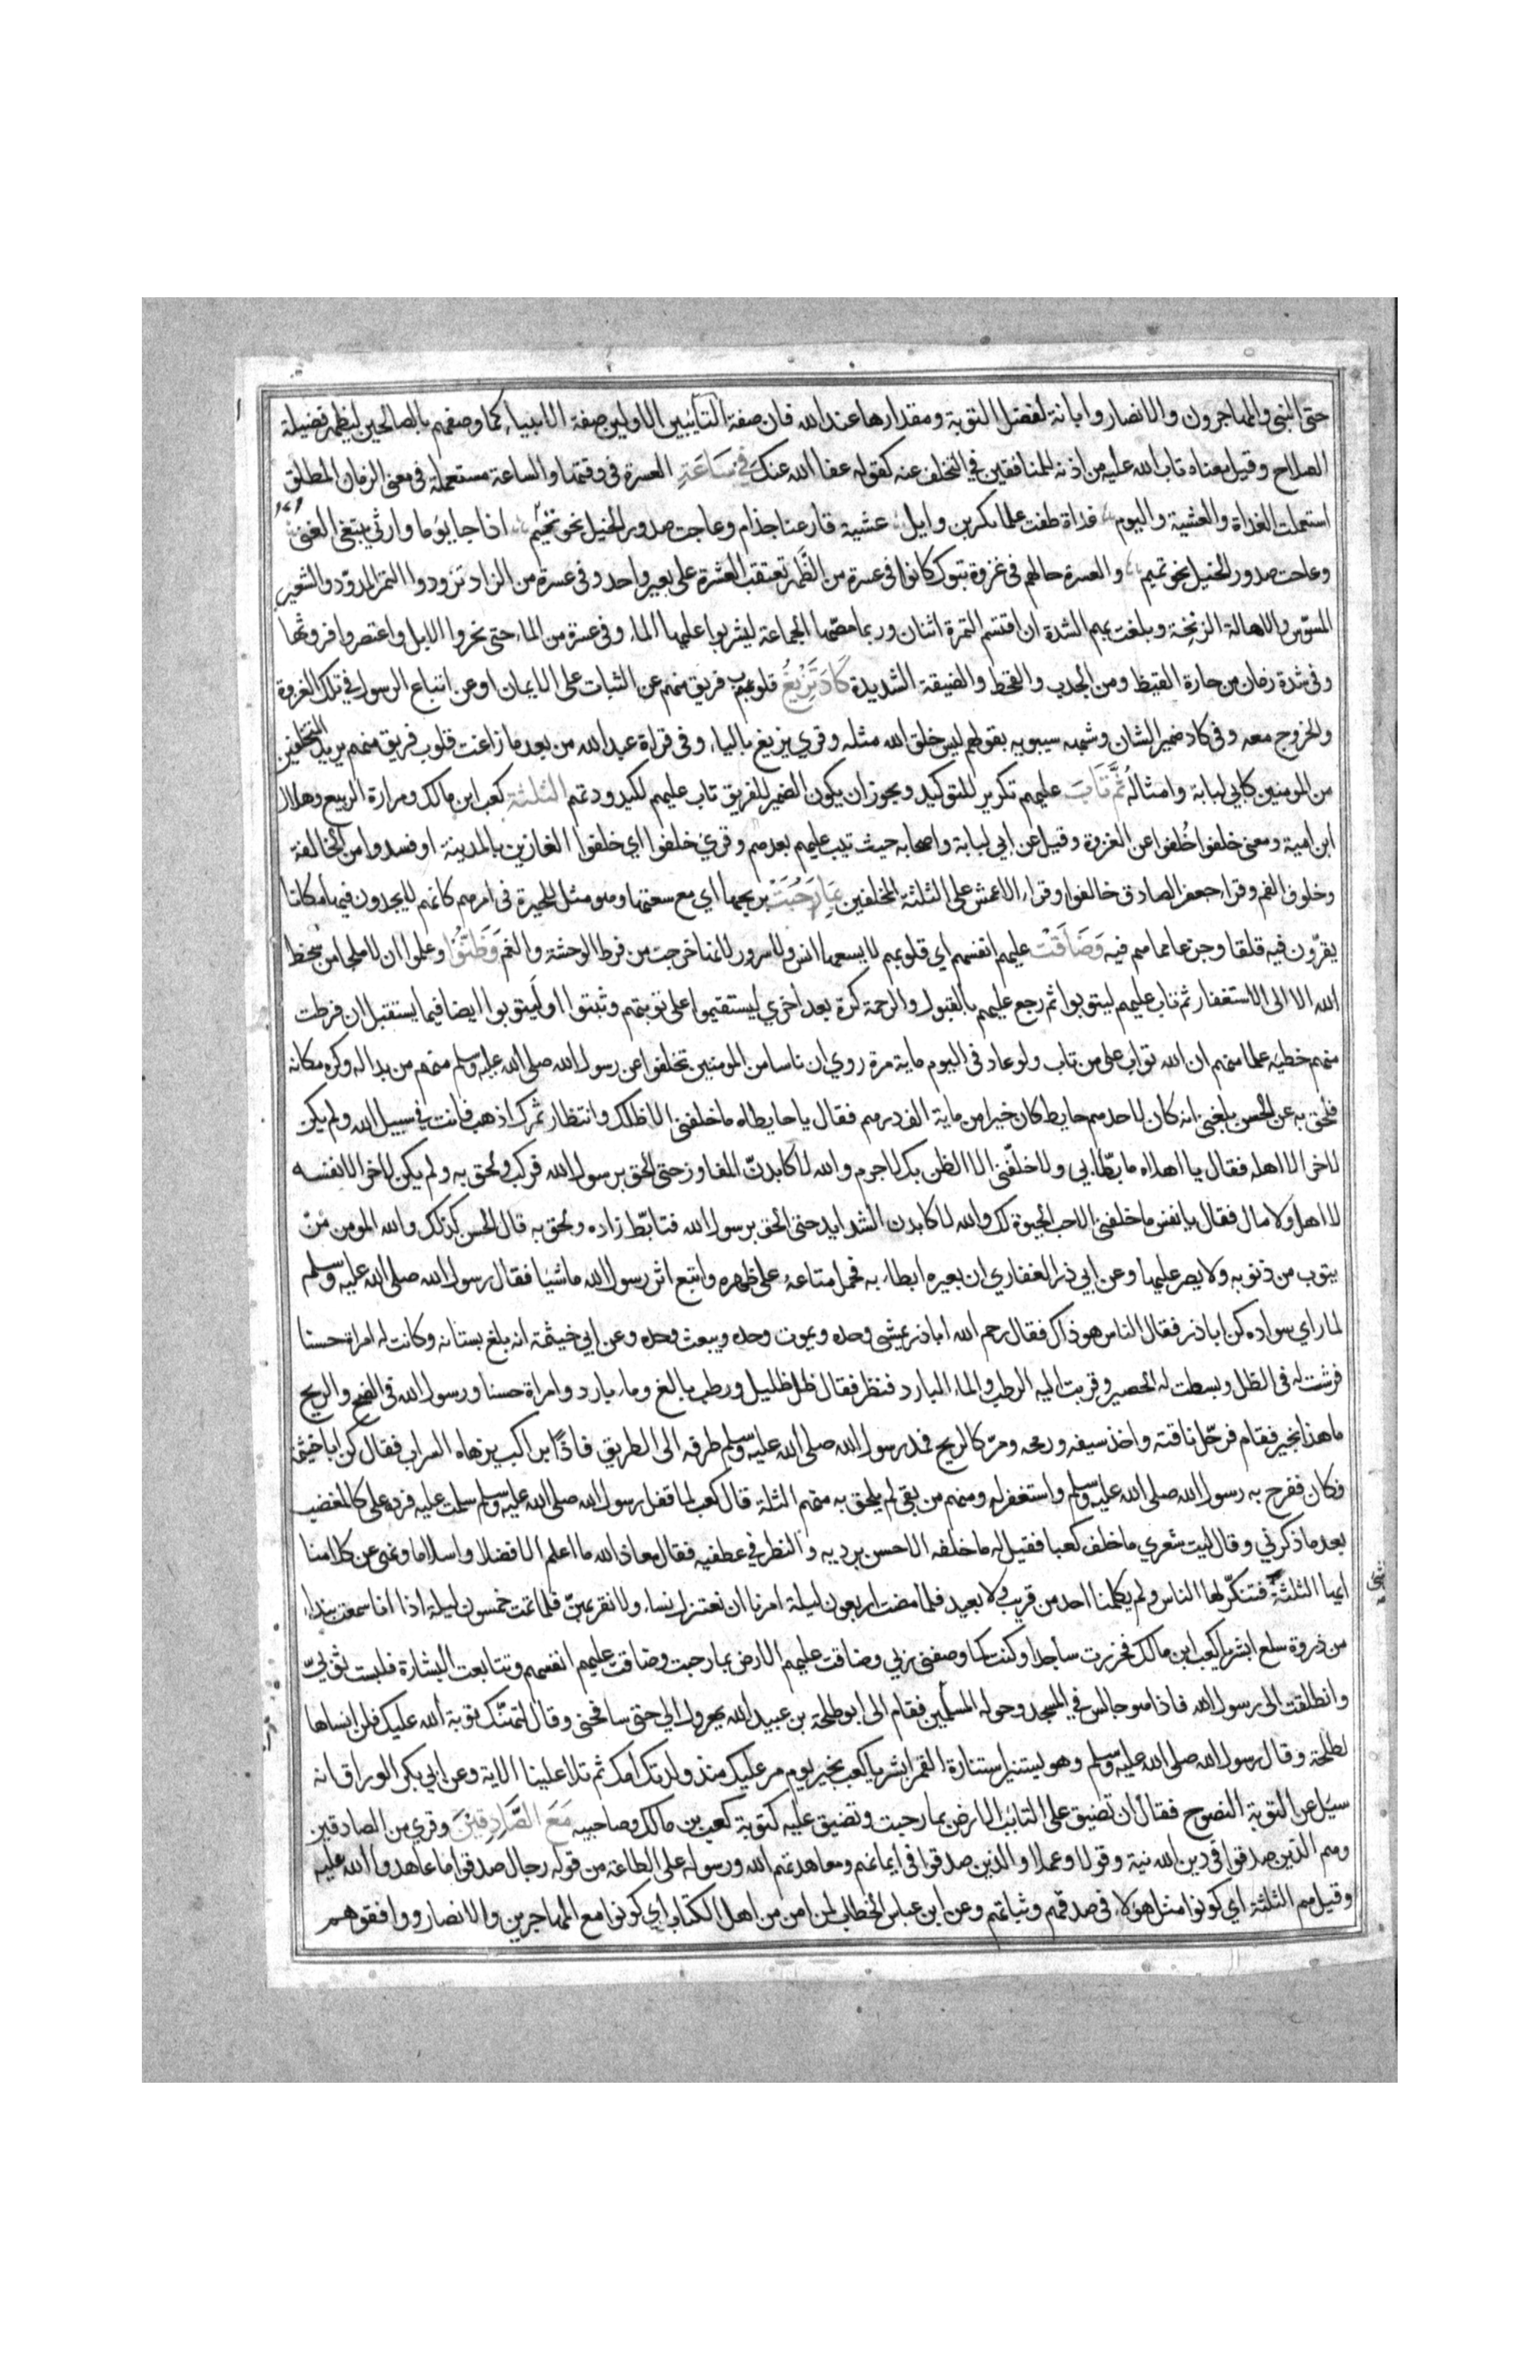 حتى النبى والمهاجرون والانصار وابانة لفضل التوبة ومقدارها عند الله فان صفة التايبين الاولين صفة الانبياء كما وصفهم بالصالحين ليظهر فضيلة
الصلاح وقيل معناه تاب الله عليه من اذنه للمنافقين في التخلف عنه كقوله عفا الله عنك في ساعة العسرة فى وقتها والساعة مستعملة فى معنى الزمان المطلق كما
استعملت الغداة والعشية واليوم غداة طفت علما بكر بن وايل عشية قارعنا جذام وعاجت صدور الخيل نحو تميم اذا جا يوما وارثي يبتغي الغنى
وعاجت صدور الخيل نحو تميم والعسرة حالهم فى غزوة تبوك كانوا فى عسرة من الظهر تعتقب العشرة على بعير واحد وفى عسرة من الزاد تزودوا التمر المدود والشعير
المسوس والاهالة الزنخة وبلغت بهم الشدة ان اقتسم التمرة اثنان وربما مصها الجماعة ليشربوا عليها الماء وفى عسرة من الماء حتى نحروا الابل واعتصروا فروثها
وفى شدة زمان من حارة القيظ ومن الجدب والقحط والضيقة الشديدة كاد تزيغ قلوب فريق منهم عن الثبات على الايمان او عن اتباع الرسول في تلك الغزوة
والخروج معه وفى كاد ضمير الشان وشبهه سيبويه بقولهم ليس خلق الله مثله وقري يزيغ بالياء وفى قراة عبد الله من بعد ما زاغت قلوب فريق منهم يريد المتخلفين
من المومنين كابي لبابة وامثاله ثم تاب عليهم تكرير للتوكيد ويجوز ان يكون الضمير للفريق تاب عليهم لكيدودتهم الثلثة كعب ابن مالك ومرارة الربيع وهلال
ابن امية ومعنى خلفوا خلفوا عن الغزو وقيل عن ابي لبابة واصحابه حيث تيب عليهم بعدهم وقري خلفوا اي خلفوا الغازين بالمدينة او فسدوا من الخالفة
وخلوف الفم وقراء جعفر الصادق خالفوا وقراء الاعمش على الثلثة المخلفين بما رحبت برحبها اي مع سعتها وهو مثل للحيرة فى امرهم كانهم لا يجدون فيها مكانا
يقرون فيه قلقا وجزعا مما هم فيه وضاقت عليهم انفسهم اي قلوبهم لا يسعها انس ولا سرور لانها خرجت من فرط الوحشة والغم وظنوا وعلموا ان لا ملجا من سخط
الله الا الى الاستغفار ثم تاب عليهم ليتوبوا ثم رجع عليهم بالقبول والرحمة كرة بعد اخري ليستقيموا على توبتهم وثبتوا او ليتوبوا ايضا فيما يستقبل ان فرطت
منهم خطية علما منهم ان الله تواب على من تاب ولو عاد فى اليوم ماية مرة روي ان ناسا من المومنين تخلفوا عن رسول الله صلى الله عليه وسلم منهم من بدا له وكره مكانه
فلحق به عن الحسن بلغني انه كان لاحدهم حايط كان خيرا من ماية الف درهم فقال يا حايطاه ما خلفنى الا ظلك وانتظار ثمرك اذهب فانت في سبيل الله ولم يكن
لاخر الا اهله فقال يا اهلاه ما بطابي ولا خلفنى الا الظن بك لا جرم والله لاكابدن المفاوز حتى الحق برسول الله فركب ولحق به ولم يكن لاخر الا نفسه
لا اهل ولا مال فقال يا نفس ما خلفنى الا حب الحيوة لك والله لاكابدن الشدايد حتى الحق برسول الله فتابط زاده ولحق به قال الحسن كذلك والله المومن من
يتوب من ذنوبه ولا يصر عليها وعن ابي ذر الغفاري ان بعيره ابطاء به فحمل متاعه على ظهره واتبع اثر رسول الله ماشيا فقال رسول الله صلى الله عليه وسلم
لما راي سواده كن ابا ذر فقال الناس هو ذاك فقال رحم الله ابا ذر يمشى وحده ويموت وحده ويبعث وحده وعن ابي خيثمة انه بلغ بستانه وكانت له امراة حسنا
فرشت له فى الظل وبسطت له الحصير وقربت اليه الرطب والماء البارد فنظر فقال ظل ظليل ورطب يانع وماء بارد وامراة حسنا ورسول الله فى الضح والريح
ما هذا بخير فقام فرحل ناقته واخذ سيفه ورمحه ومر كالريح فمد رسول الله صلى الله عليه وسلم طرفه الى الطريق فاذا براكب يزهاه السراب فقال كن ابا خيثمة
فكان ففرح به رسول الله صلى الله عليه وسلم واستغفر له ومنهم من بقى لم يلحق به منهم الثلثة قال كعب لما قفل رسول الله صلى الله عليه وسلم سلمت عليه فرد على كالمغضب
بعد ما ذكرني وقال ليت شعري ما خلف كعبا فقيل له ما خلفه الا حسن برديه والنظر في عطفيه فقال معاذ الله ما اعلم الا فضلا واسلاما ونهى عن كلامنا
ايها الثلثة فتنكر لنا الناس ولم يكلمنا احد من قريب ولا بعيد فلما مضت اربعون ليلة امرنا ان نعتزل نساءنا ولا نقربهن فلما تمت خمسون ليلة اذا انا سمعت بنداء
من ذروة سلع ابشر يا كعب ابن مالك فخررت ساجدا وكنت كما وصفنى ربي وضاقت عليهم الارض بما رحبت وضاقت عليهم انفسهم وتتابعت البشارة فلبست ثوبي
وانطلقت الى رسول الله فاذا هو جالس في المسجد وحوله المسلمين فقام الى ابو طلحة بن عبيد الله يهرول الي حتى صافحنى وقال لتهنك توبة الله عليك فلن انساها
لطلحة وقال رسول الله صلى الله عليه وسلم وهو يستنير استنارة القمر ابشر يا كعب بخير يوم مر عليك منذ ولدتك امك ثم تلا علينا الاية وعن ابي بكر الوراق انه
سيل عن التوبة النصوح فقال ان تضيق على التايب الارض بما رحبت وتضيق عليه كتوبة كعب بن مالك وصاحبيه مع الصادقين وقري من الصادقين
وهم الذين صدقوا فى دين الله نية وقولا وعملا والذين صدقوا فى ايمانهم ومعاهدتهم الله ورسوله على الطاعة من قوله رجال صدقوا ما عاهدوا الله عليه
وقيل هم الثلثة اي كونوا مثل هولاء فى صدقهم وثباتهم وعن ابن عباس الخطاب لمن امن من اهل الكتاب اي كونوا مع المهاجرين والانصار ووافقوهم